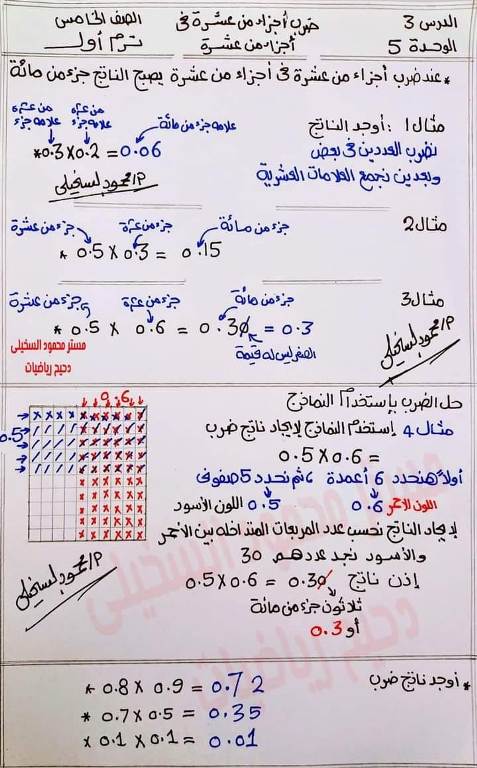 الدرس 3
الوحدة 5
ضرب أجزاء من عشرة فى
أجزاء من عشرة
الصف الخامس
ترم أول
* عند ضرب أجزاء من عشرة فى أجزاء من عشرة يصبح الناتج جزء من مائة
مثال 1 : أوجد الناتج
نضرب العددين فى بعض
وبعدين نجمع العلامات العشرية
من عشرة علامة جزء
من عشرة علامة جزء
علامة جزء من مائة
* 0.3 x 0.2 = 0.06
P/محمود السخيلى
مثال 2
جزء من عشرة
جزء من عشرة
جزء من مائة
* 0.5 x 0.3 = 0.15
مثال 3
جزء من عشرة
جزء من عشرة
جزء من مائة
* 0.5 x 0.6 = 0.30 = 0.3
الصفر ليس له قيمة
مستر محمود السخيلى
دحيح رياضيات
P/محمود السخيلى
حل الضرب بإستخدام النماذج
مثال 4 إستخدم النماذج لإيجاد ناتج ضرب
0.5 x 0.6 =
أولاً هنحدد 6 أعمدة ، ثم نحدد 5 صفوف
0.6 اللون الأحمر
0.5 اللون الأسود
لإيجاد الناتج نحسب عدد المربعات المتداخله بين الأحمر
والأسود نجد عددهم 30
إذن ناتج 0.5 x 0.6 = 0.30
ثلاثون جزء من مائة
أو 0.3
0.6
0.5
P/محمود السخيلى
مستر محمود السخيلى
دحيح رياضيات
* أوجد ناتج ضرب
* 0.8 x 0.9 = 0.72
* 0.7 x 0.5 = 0.35
x 0.1 x 0.1 = 0.01